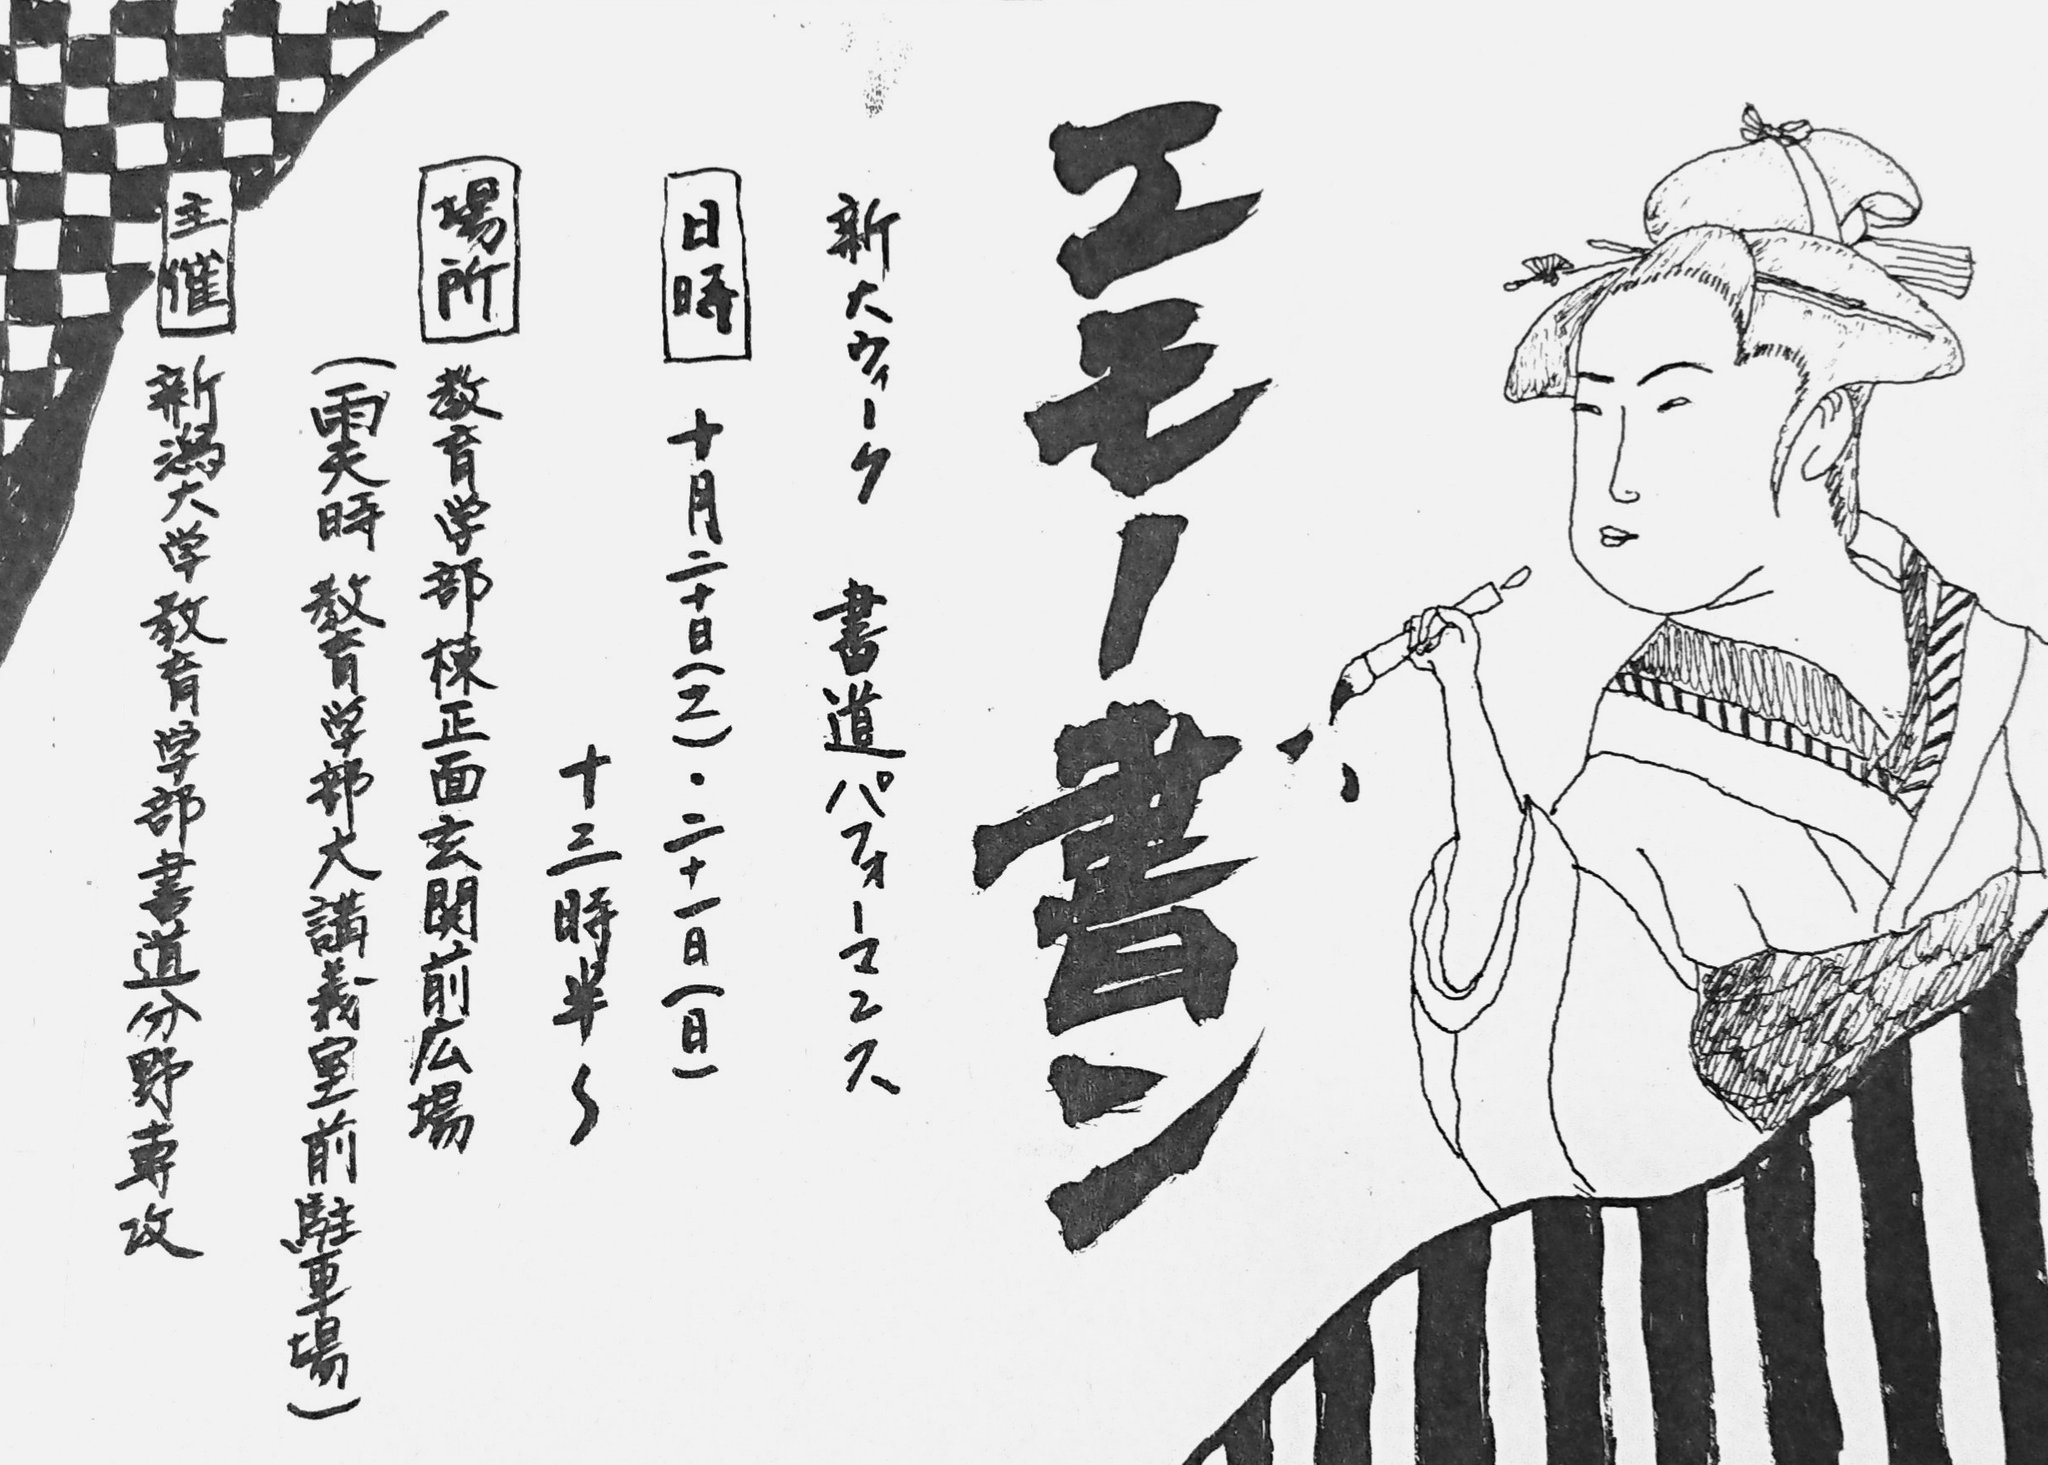 エモー書ン
新大ウィーク 書道パフォーマンス
日時 十月二十日(土)・二十一日(日)
十三時半〜
場所 教育学部棟正面玄関前広場
(雨天時 教育学部大講義室前駐車場)
主催 新潟大学教育学部書道分野専攻